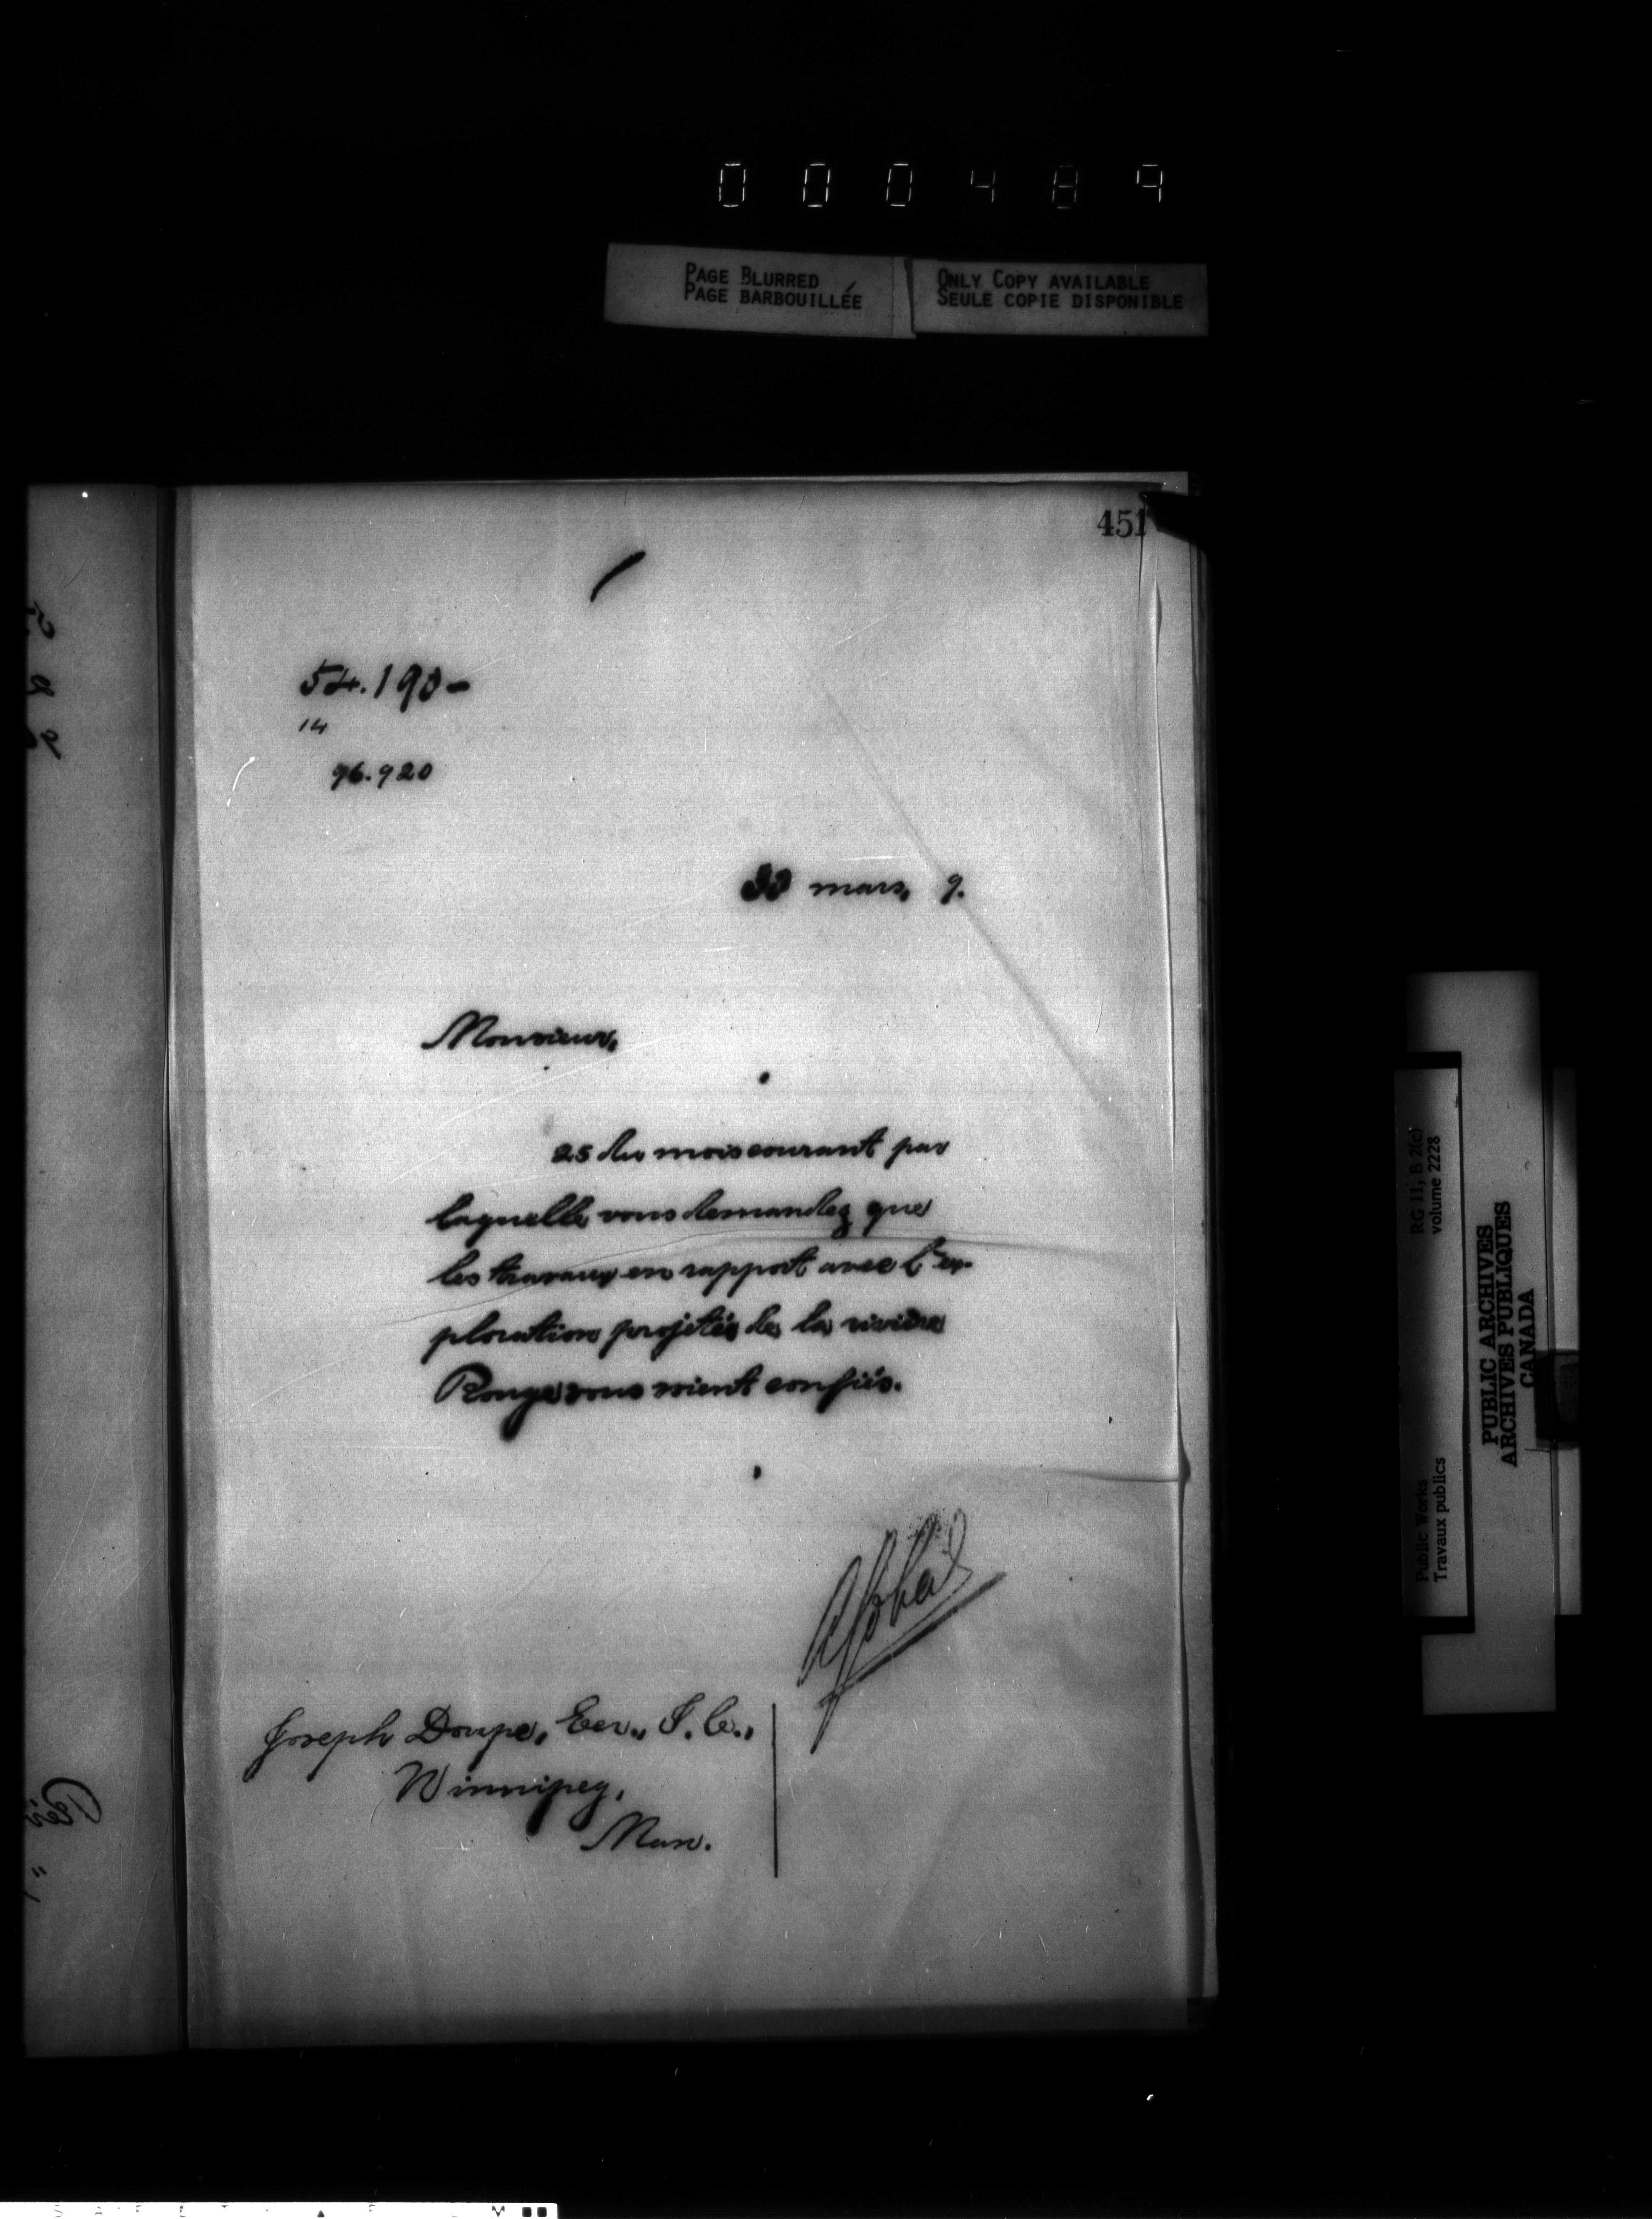 000489
PAGE BLURRED
PAGE BARBOUILLÉE
ONLY COPY AVAILABLE
SEULE COPIE DISPONIBLE
451
54.190-
14
96.920
30 mars, 9.
Monsieur,
25 du mois courant par
laquelle vous demandez que
les travaux en rapport avec l'ex-
ploration projetée de la rivière
Rouge vous soient confiés.
Joseph Doupe, Ecr., I. C.,
Winnipeg,
Man.
RG 11, B 2(c)
volume 2228
Public Works
Travaux publics
PUBLIC ARCHIVES
ARCHIVES PUBLIQUES
CANADA